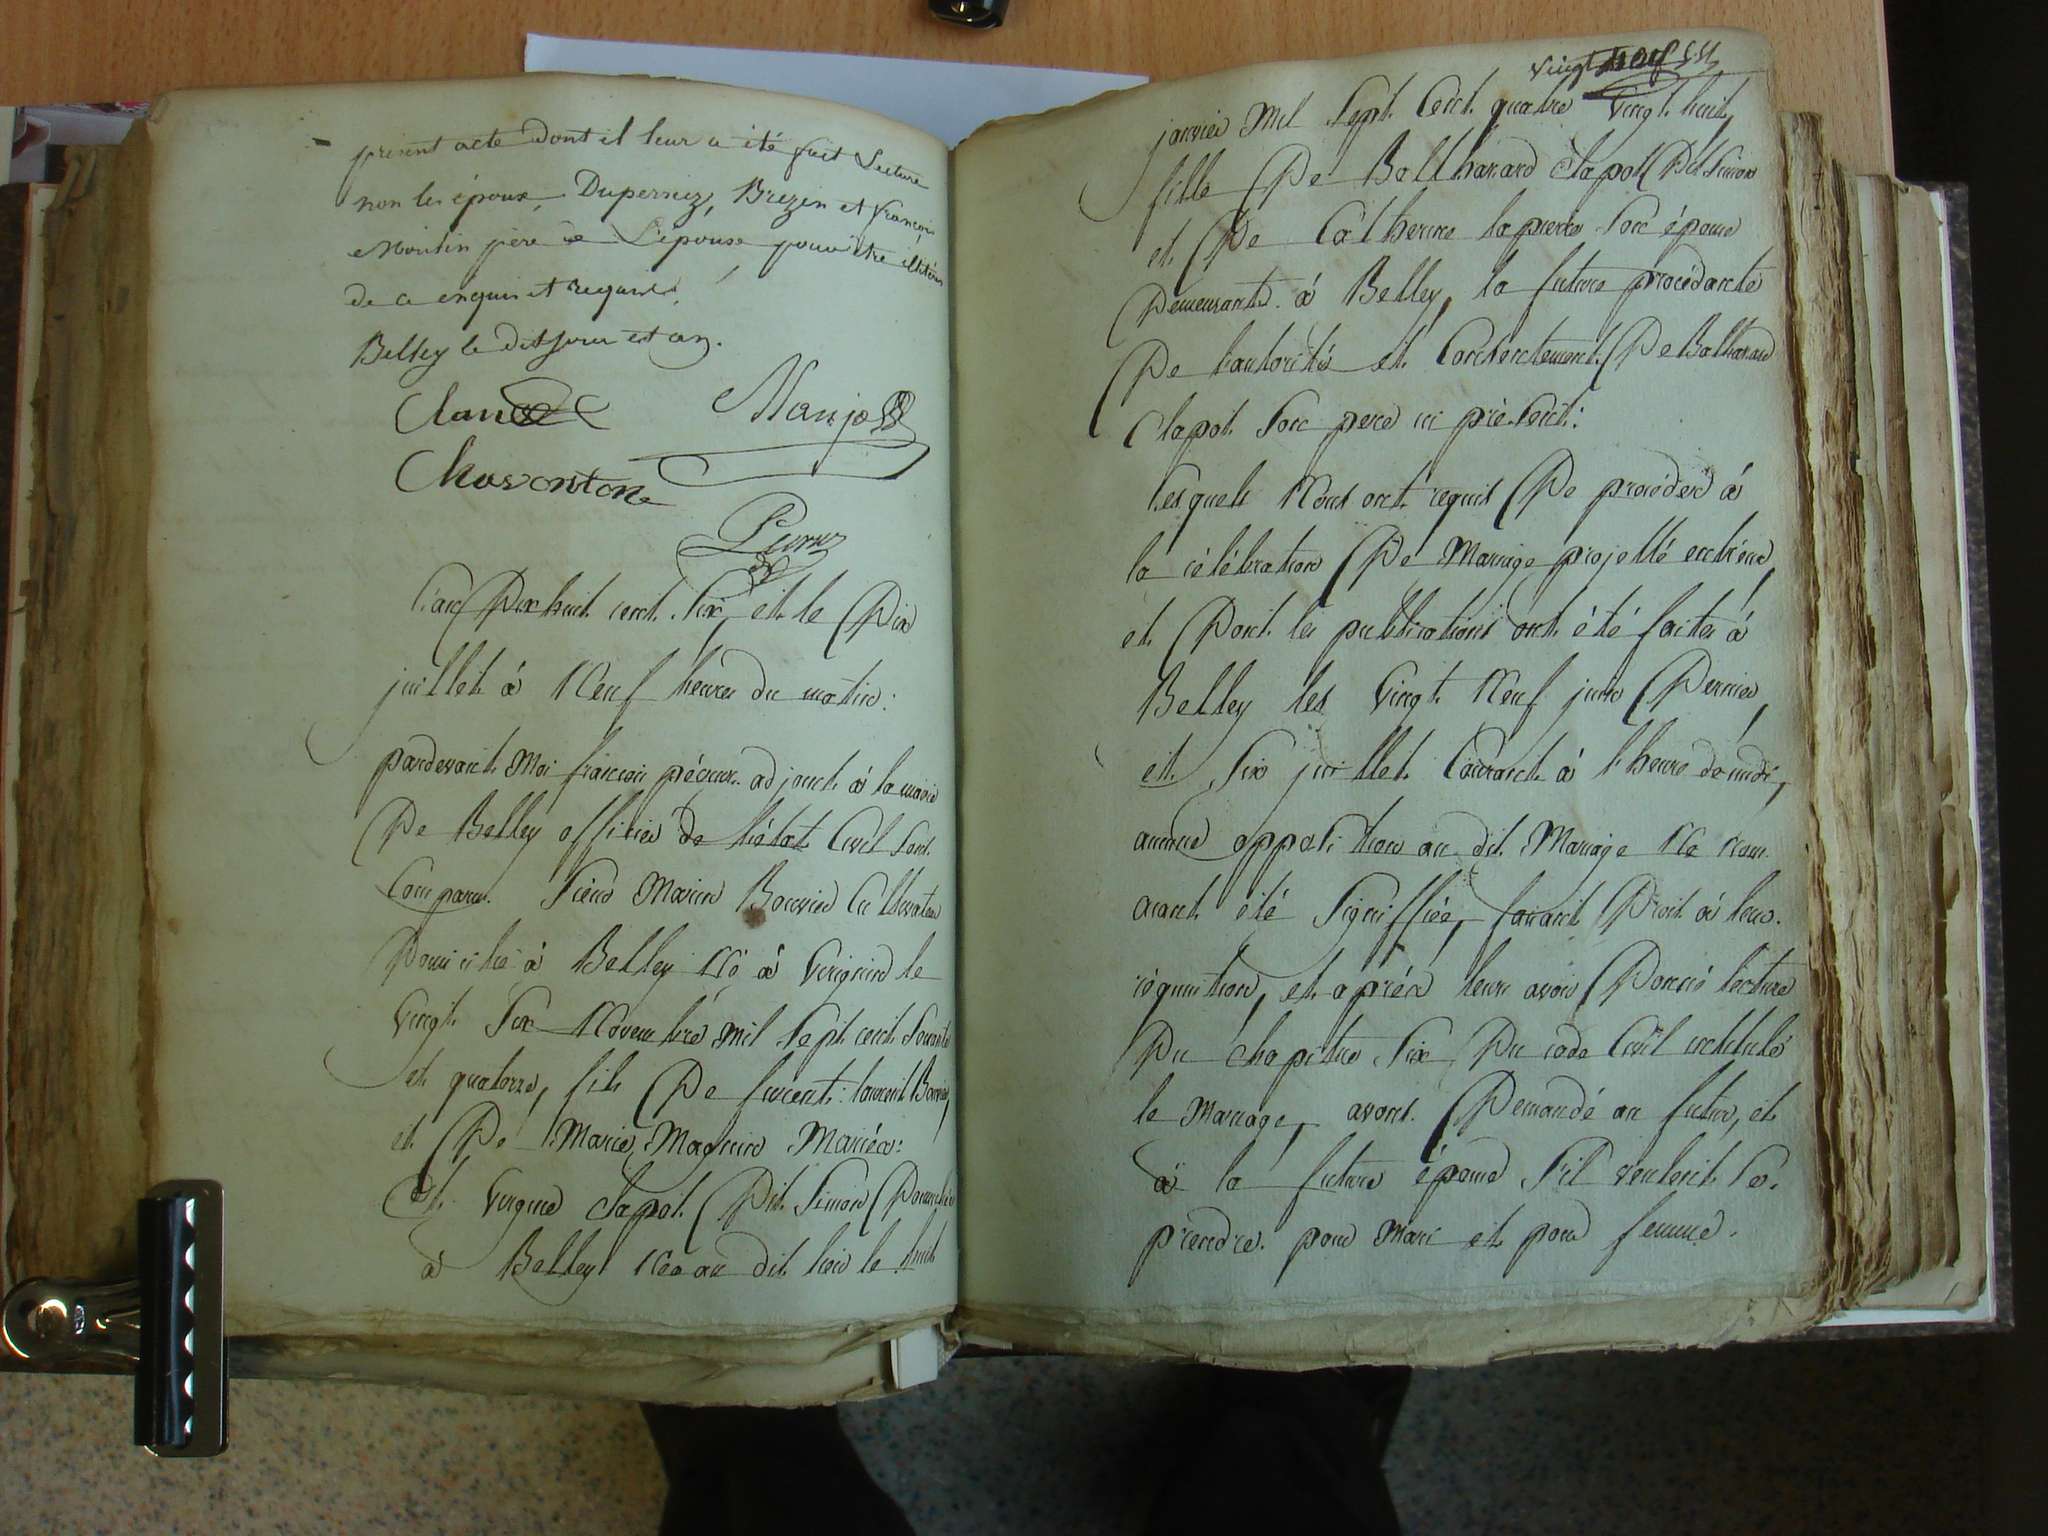 présent acte dont il leur a été fait Lecture
non les époux, Duperriez, Brezin et françois
Moulin père de L'épouse pour être illitérés
de ce enquis et requis.
Belley le dit jour et an.
Manjot
Chaventone
L'an Dix huit cent Six, et le Dix
juillet à Neuf heures du matin:
pardevant Moi françois adjoint à la mairie
De Belley officier de L'état Civil Sont
Comparus Sieur Marin Bouvier Cultivateur
Domicilié à Belley Né à Virignin le
Vingt Six Novembre mil Sept cent Soixante
et quatorze, fils De laurent Bouvier,
et De Marie Magnin Mariés:
Et Virginie Clapot Dit Simon Domiciliée
à Belley Née au dit lieu le huit
vingt neuf
janvier Mil Sept Cent quatre Vingt huit,
fille De Balthazard Clapot Dit Simon
et De Catherine lapierre Son épouse
Demeurants à Belley, la future procédante
De l'autorité et Consentement De Balthazard
Clapot Son pere ici présent:
Lesquels Nous ont requis De procéder à
la célébration De Mariage projetté entr'eux,
et Dont les publications ont été faites à
Belley les Vingt Neuf juin Dernier,
et Six juillet Courant à l'heure de midi,
aucune opposition au dit Mariage Ne Nous
aiant été Signiffiée, faisant Droit à leur
réquisition, et après leur avoir Donné lecture
Du chapitre Six Du code Civil intitulé
le Mariage, avons Demandé au futur, et
à la future épouse S'il veulent Se
prendre pour Mari et pour femme.